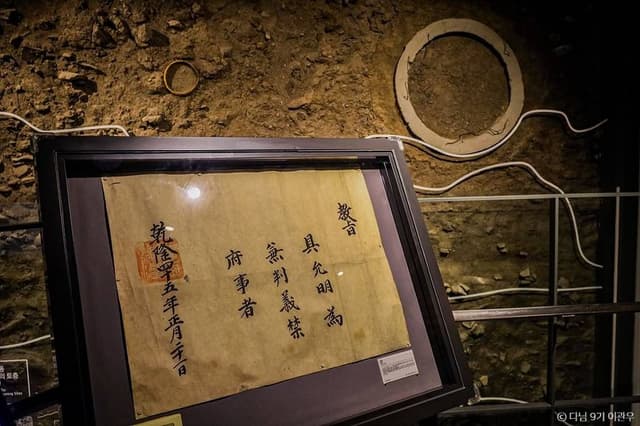 敎旨
具允明爲
兼判義禁
府事者
乾隆四十五年正月二十一日
의 토층
© 디님 9기 이관우